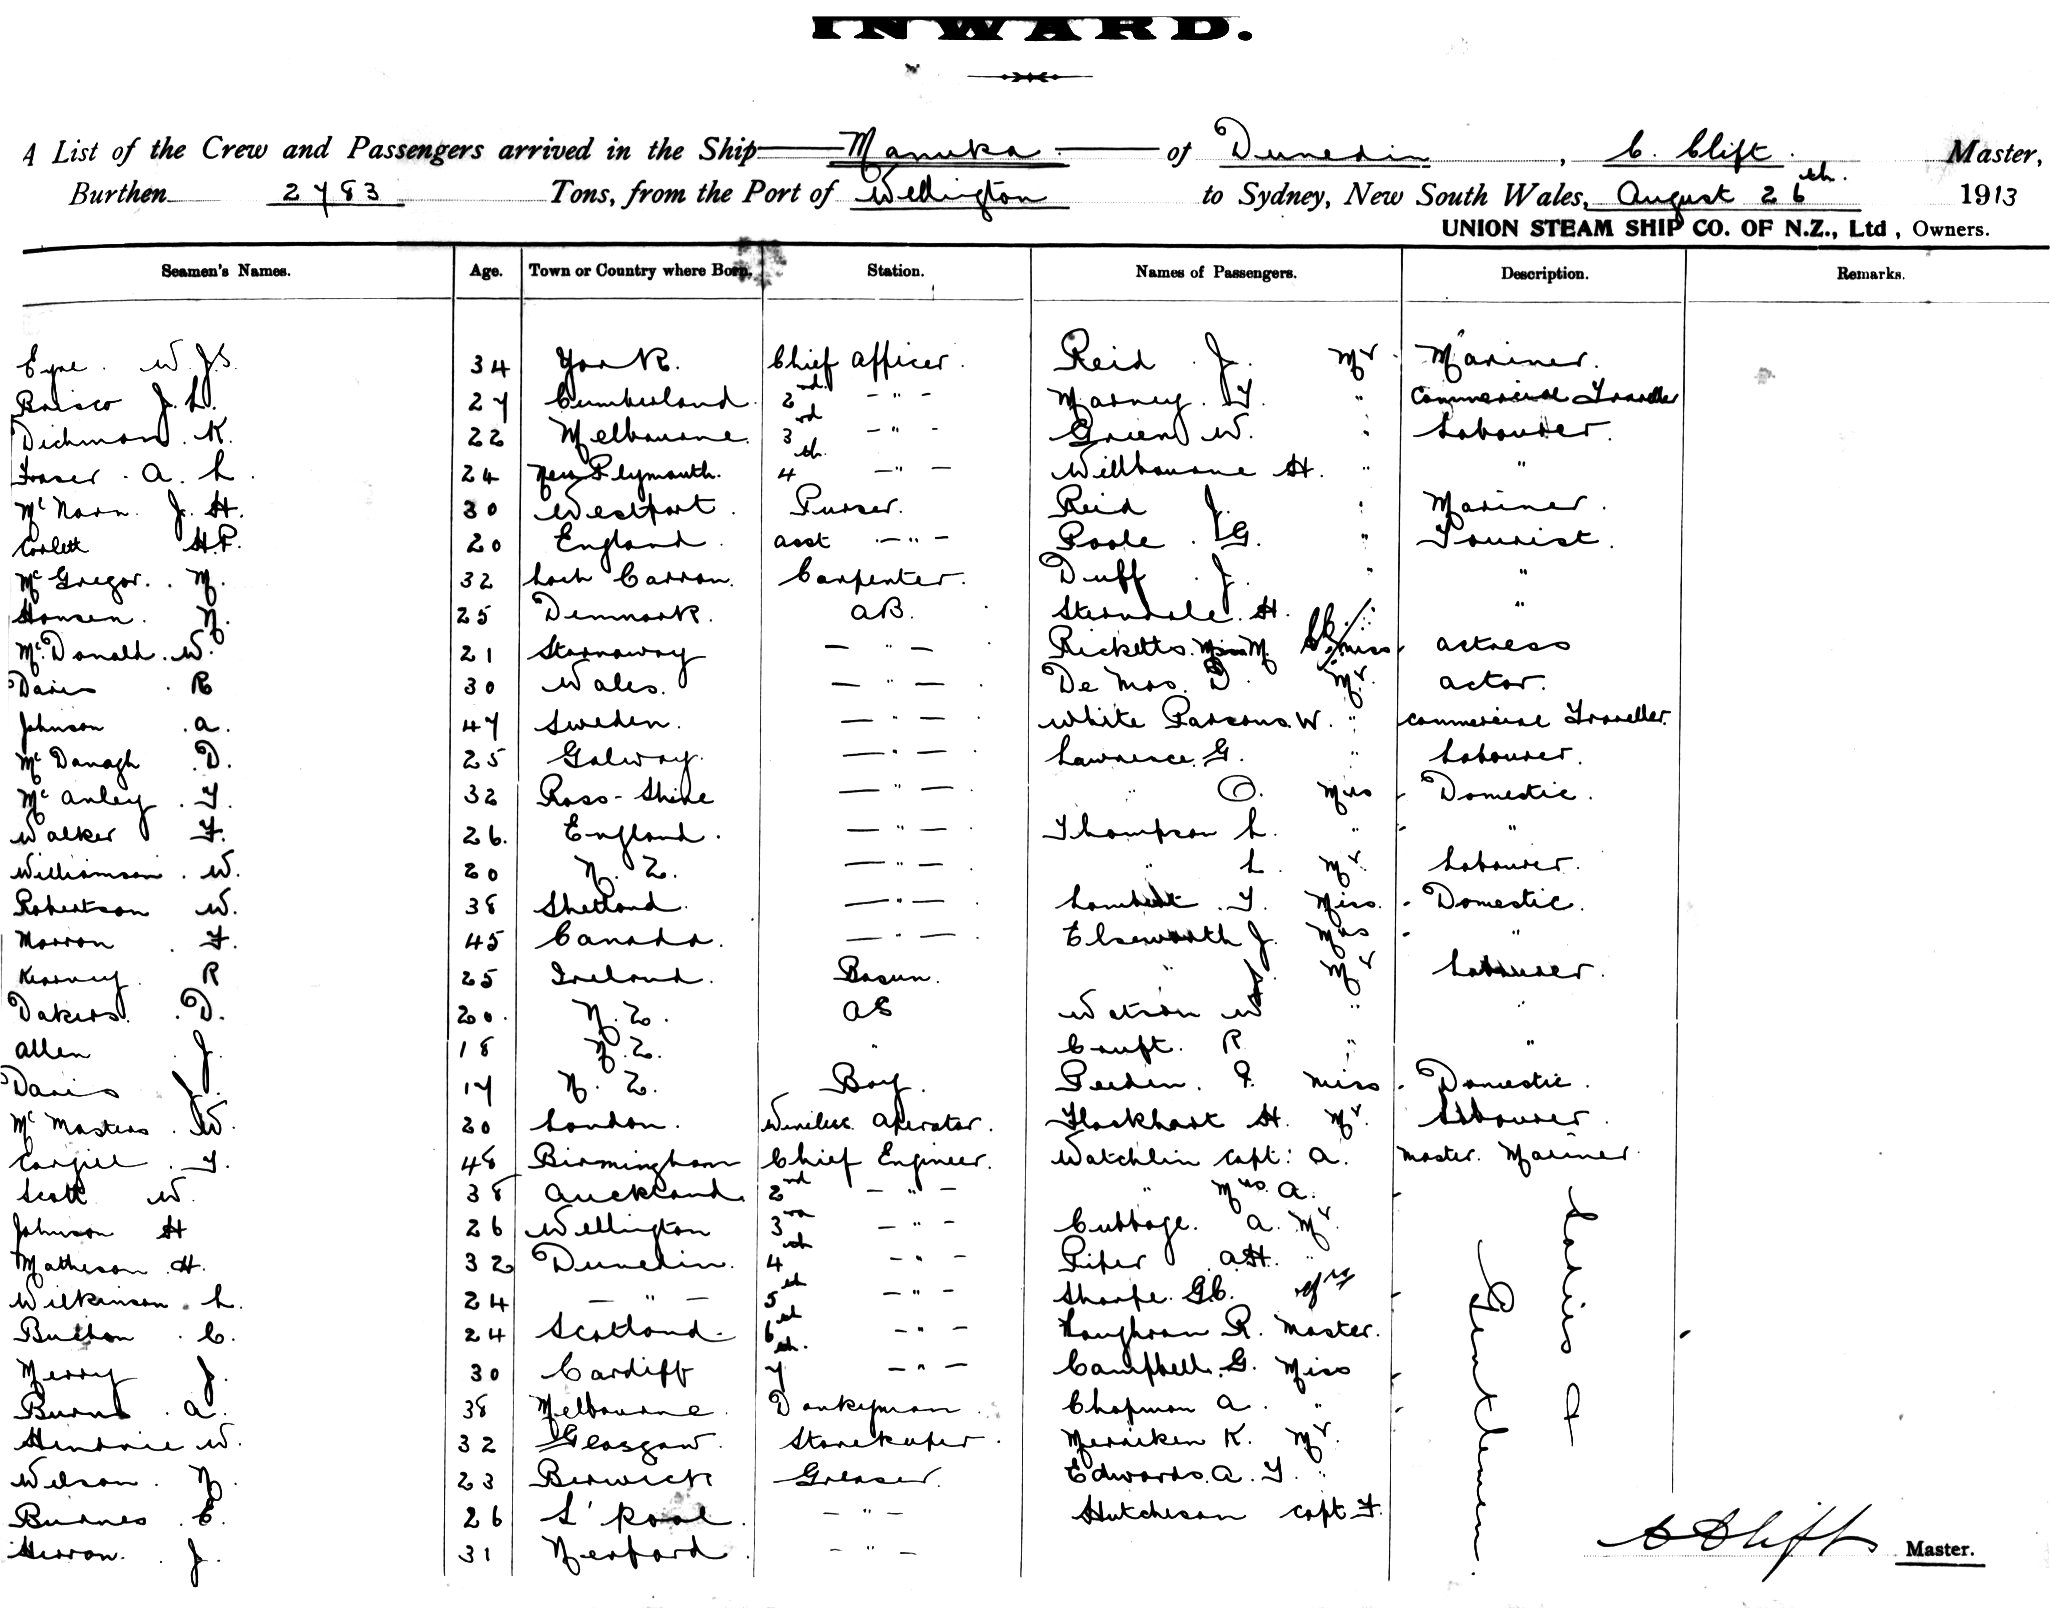 INWARD.
A List of the Crew and Passengers arrived in the Ship Manuka of Dunedin, C. Clift. Master,
Burthen 2783 Tons, from the Port of Wellington to Sydney, New South Wales, August 26th. 1913
UNION STEAM SHIP CO. OF N.Z., Ltd, Owners.
Seamen's Names. Age. Town or Country where Born. Station. Names of Passengers. Description. Remarks.
Eyre. W. J.S. 34 York. Chief Officer. Reid J. Mr Mariner.
Brisco J.L. 27 Cumberland 2nd - " - Marney. T. " Commercial Traveller
Dichman. K. 22 Melbourne. 3rd - " - Green W. " Labourer.
Fraser. A. L. 24 New Plymouth. 4th. - " - Willbourne H. " "
McNarn. J. H. 30 Westport. Purser. Reid J. " Mariner.
Corlett H.P. 20 England. Asst - " - Poole. G. " Tourist.
McGregor. M. 32 Loch Carron. Carpenter. Duff. J. " "
Hansen. N. 25 Denmark. AB. Sterndale. H. " "
McDonald. W. 21 Stornaway - " - Ricketts. M. Miss Actress
Davis R 30 Wales. - " - De Mos. D. Mr. Actor.
Johnson A. 47 Sweden. - " - White Parsons. W. " Commercial Traveller.
McDonagh D. 25 Galway. - " - Lawrence. G. " Labourer.
McAuley. T. 32 Ross-Shire - " - " O. Mrs Domestic.
Walker F. 26. England. - " - Thompson L. " "
Williamson. W. 20 N. Z. - " - " L Mr. Labourer.
Robertson W. 38 Shetland. - " - Lambert. T. Miss. Domestic.
Marron F. 45 Canada. - " - Elseworth J. Mrs "
Kearney R 25 Ireland. Bosun. " J. Mr Labourer.
Dakers. D. 20. N. Z. AB Watson W " "
Allen J. 18 N. Z. " Cruft. R " "
Davis 17 N. Z. Boy. Peeden. Miss Domestic.
McMasters. W. 20 London. Wireless Operator. Flockhart H. Mr. Labourer.
Cargill. T. 48 Birmingham Chief Engineer. Watchlin Capt: A. Master Mariner.
Scott W. 38 Auckland. 2nd - " - " Mrs. A.
Johnson H 26 Wellington 3rd - " - Cubbage. A. Mr.
Matheson H. 32 Dunedin. 4th - " - Piper A.H. "
Wilkinson. L. 24 - " - 5th - " - Sharpe. G.C. Mrs
Buthon. C. 24 Scotland. 6th - " - Loughran R. Master.
Merry J. 30 Cardiff 7th. - " - Campbell. G. Miss
Burns. A. 38 Melbourne. Donkeyman. Chapman A. "
Hendrie W. 32 Glasgow. Storekeeper. Merriken K. Mr.
Wilson. N. 23 Berwick Greaser. Edwards. A. T. "
Burnes. E. 26 L'pool. - " - Hutcheson Capt F.
Herron. J. 31 - " -
Ladies &
Gentlemen.
C Clift Master.